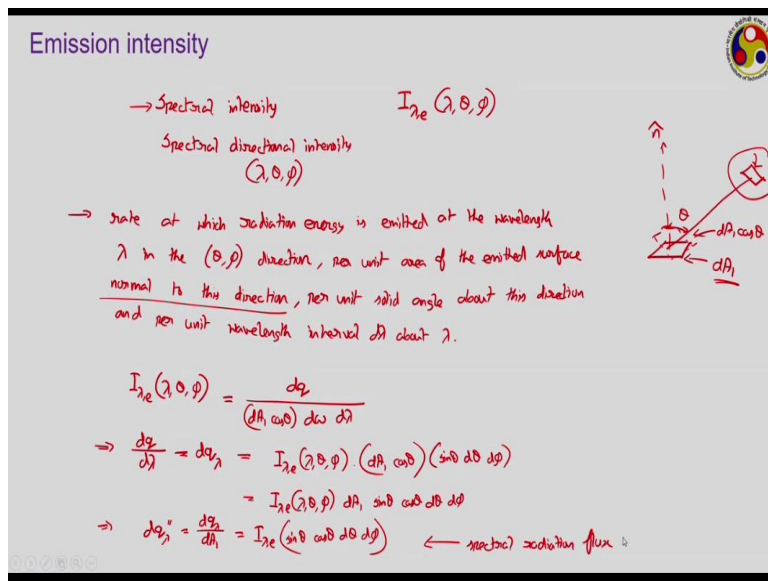 Emission intensity
→ Spectral intensity I_λe (λ, θ, φ)
Spectral directional intensity
(λ, θ, φ)
→ rate at which radiation energy is emitted at the wavelength
λ in the (θ, φ) direction, per unit area of the emitted surface
normal to this direction, per unit solid angle about this direction
and per unit wavelength interval dλ about λ.
n̂
2
θ
dA₁ cosθ
dA₁
I_λ,e (λ, θ, φ) = dq / (dA₁ cosθ) dω dλ
⇒ dq/dλ = dq_λ = I_λe (λ, θ, φ) . (dA₁ cosθ) (sinθ dθ dφ)
= I_λe (λ, θ, φ) dA₁ sinθ cosθ dθ dφ
⇒ dq_λ'' = dq_λ/dA₁ = I_λe (sinθ cosθ dθ dφ) ← spectral radiation flux